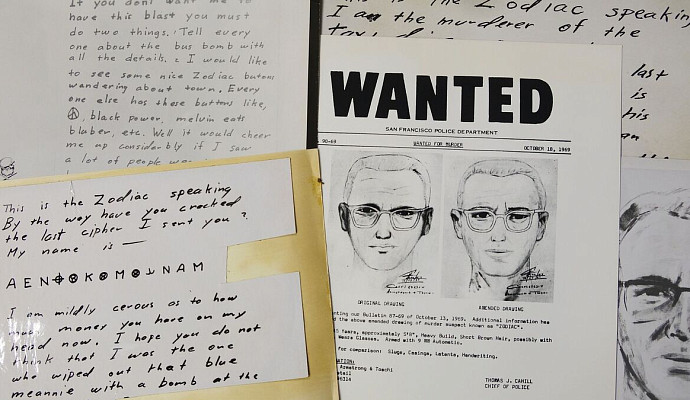 If you dont want me to
have this blast you must
do two things. 1 Tell every
one about the bus bomb with
all the details. 2 I would like
to see some nice Zodiac butons
wandering about town. Every
one else has these buttons like,
☮, black power, melvin eats
bluber, etc. Well it would cheer
me up considerbly if I saw
a lot of people
This is the Zodiac speaking
By the way have you cracked
the last cipher I sent you?
My name is —
A E N ⊕ K O M N A M
I am mildly cerous as to how
much money you have on my
head now. I hope you do not
think that I was the one
who wiped out that blue
meannie with a bomb at the
the Zodiac speaking
I am the murderer of the
last
is
his
WANTED
SAN FRANCISCO POLICE DEPARTMENT
90-69 WANTED FOR MURDER OCTOBER 18, 1969
ORIGINAL DRAWING AMENDED DRAWING
ting our Bulletin 87-69 of October 13, 1969. Additional information has
the above amended drawing of murder suspect known as "ZODIAC".
Years, approximately 5'8", Heavy Build, Short Brown Hair, possibly with
Wears Glasses. Armed with 9 MM Automatic.
for comparison: Slugs, Casings, Latents, Handwriting.
ATION:
Armstrong & Toschi
THOMAS J. CAHILL
CHIEF OF POLICE